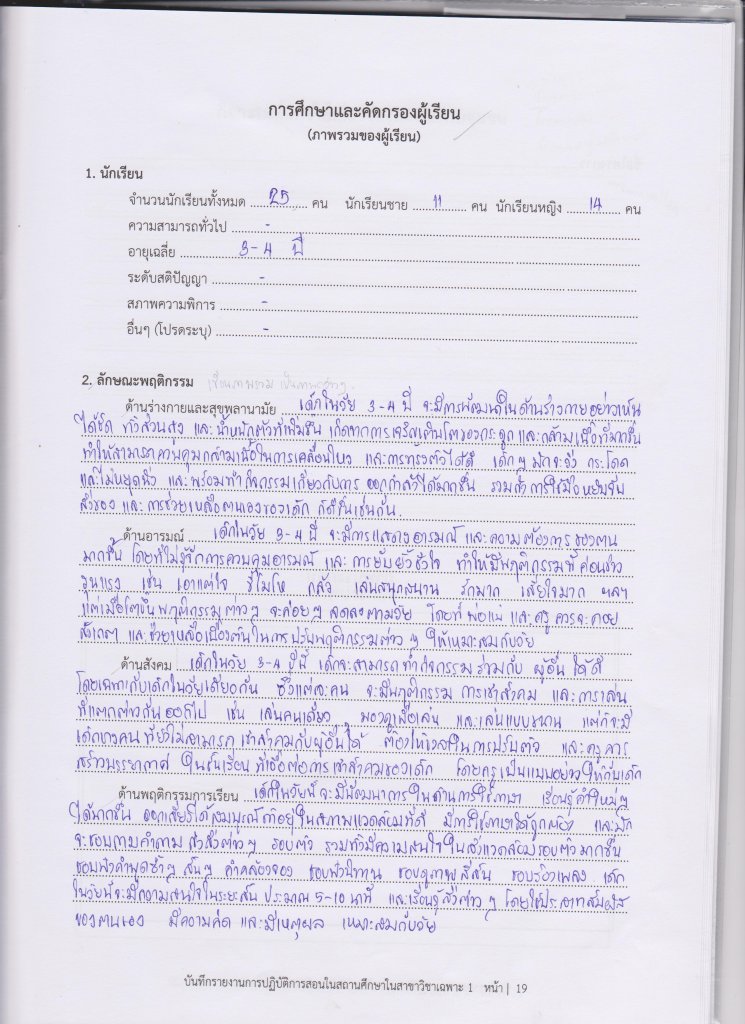 การศึกษาและคัดกรองผู้เรียน
(ภาพรวมของผู้เรียน)
1. นักเรียน
จำนวนนักเรียนทั้งหมด 25 คน นักเรียนชาย 11 คน นักเรียนหญิง 14 คน
ความสามารถทั่วไป -
อายุเฉลี่ย 3-4 ปี
ระดับสติปัญญา -
สภาพความพิการ -
อื่นๆ (โปรดระบุ) -
2. ลักษณะพฤติกรรม เขียนภาพรวม
ด้านร่างกายและสุขพลานามัย เด็กในวัย 3-4 ปี จะมีการพัฒนาในด้านร่างกายอย่างเห็น
ได้ชัด ทั้งส่วนสูง และน้ำหนักตัวที่เพิ่มขึ้น เกิดจากการเจริญเติบโตของกระดูก และกล้ามเนื้อที่มากขึ้น
ทำให้สามารถควบคุมกล้ามเนื้อในการเคลื่อนไหว และการทรงตัวได้ดี เด็กๆ มักจะวิ่ง กระโดด
และไม่หยุดนิ่ง และพร้อมทำกิจกรรมเกี่ยวกับการ ออกกำลังได้มากขึ้น รวมถึงการใช้มือหยิบจับ
สิ่งของ และการช่วยเหลือตนเองของเด็ก ก็ดีขึ้นเช่นกัน.
ด้านอารมณ์ เด็กในวัย 3-4 ปี จะมีการแสดงอารมณ์ และความต้องการ ของตน
มากขึ้น โดยที่ไม่รู้จักการควบคุมอารมณ์ และการยับยั้งชั่งใจ ทำให้มีพฤติกรรมที่ค่อนข้าง
รุนแรง เช่น เอาแต่ใจ ขี้โมโห กลัว เล่นสนุกสนาน รักมาก เสียใจมาก ฯลฯ
แต่เมื่อโตขึ้นพฤติกรรมต่างๆ จะค่อยๆ ลดลงตามวัย โดยที่ พ่อแม่ และครู ควรจะคอย
สังเกต และช่วยเหลือเบื้องต้นในการปรับพฤติกรรมต่าง ๆ ให้เหมาะสมกับวัย
ด้านสังคม เด็กในวัย 3-4 ปีนี้ เด็กจะสามารถทำกิจกรรม ร่วมกับ ผู้อื่น ได้ดี
โดยเฉพาะกับเด็กในวัยเดียวกัน ซึ่งแต่ละคน จะมีพฤติกรรม การเข้าสังคม และการเล่น
ที่แตกต่างกันออกไป เช่น เล่นคนเดียว , มองดูเพื่อเล่น และเล่นแบบขนาน แต่ก็จะมี
เด็กบางคน ที่ยังไม่สามารถ เข้าสังคมกับผู้อื่นได้ ต้องให้เวลาในการปรับตัว และครู ควร
สร้างบรรยากาศ ในชั้นเรียน ที่เอื้อต่อการเข้าสังคมของเด็ก โดยครูเป็นแบบอย่างให้กับเด็ก
ด้านพฤติกรรมการเรียน เด็กในวัยนี้จะมีพัฒนาการในด้านการใช้ภาษา เรียนรู้คำใหม่ๆ
ได้มากขึ้น ออกเสียงได้สมบูรณ์ถ้าอยู่ในสภาพแวดล้อมที่ดี มีการใช้ภาษาได้ถูกต้อง และมัก
จะชอบถามคำถาม สิ่งต่างๆ รอบตัว รวมทั้งมีความสนใจในสิ่งแวดล้อมรอบตัวมากขึ้น
ชอบฟังคำพูดซ้ำๆ สั้นๆ คำคล้องจอง ชอบฟังนิทาน ชอบดูภาพสีสัน ชอบร้องเพลง เด็ก
ในวัยนี้จะมีความสนใจในระยะสั้น ประมาณ 5-10 นาที และเรียนรู้สิ่งต่างๆ โดยใช้ประสาทสัมผัส
ของตนเอง มีความคิด และมีเหตุผล เหมาะสมกับวัย
บันทึกรายงานการปฏิบัติการสอนในสถานศึกษาในสาขาวิชาเฉพาะ 1 หน้า | 19